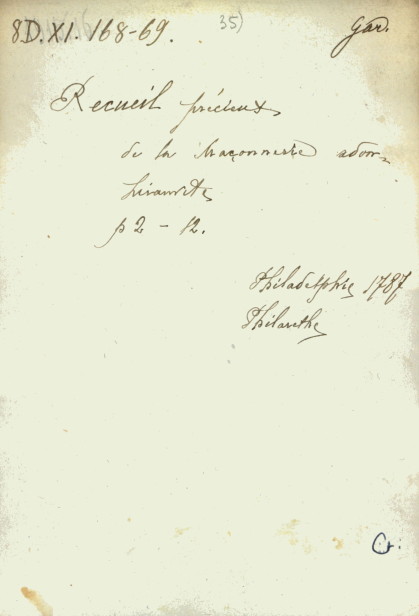 8D.XI.168-69.
35)
Gar.
Recueil précieux
de la Maçonnerie adon-
hiramite
p 2 - 12.
Philadelphie 1787
Philarethe
Ct.